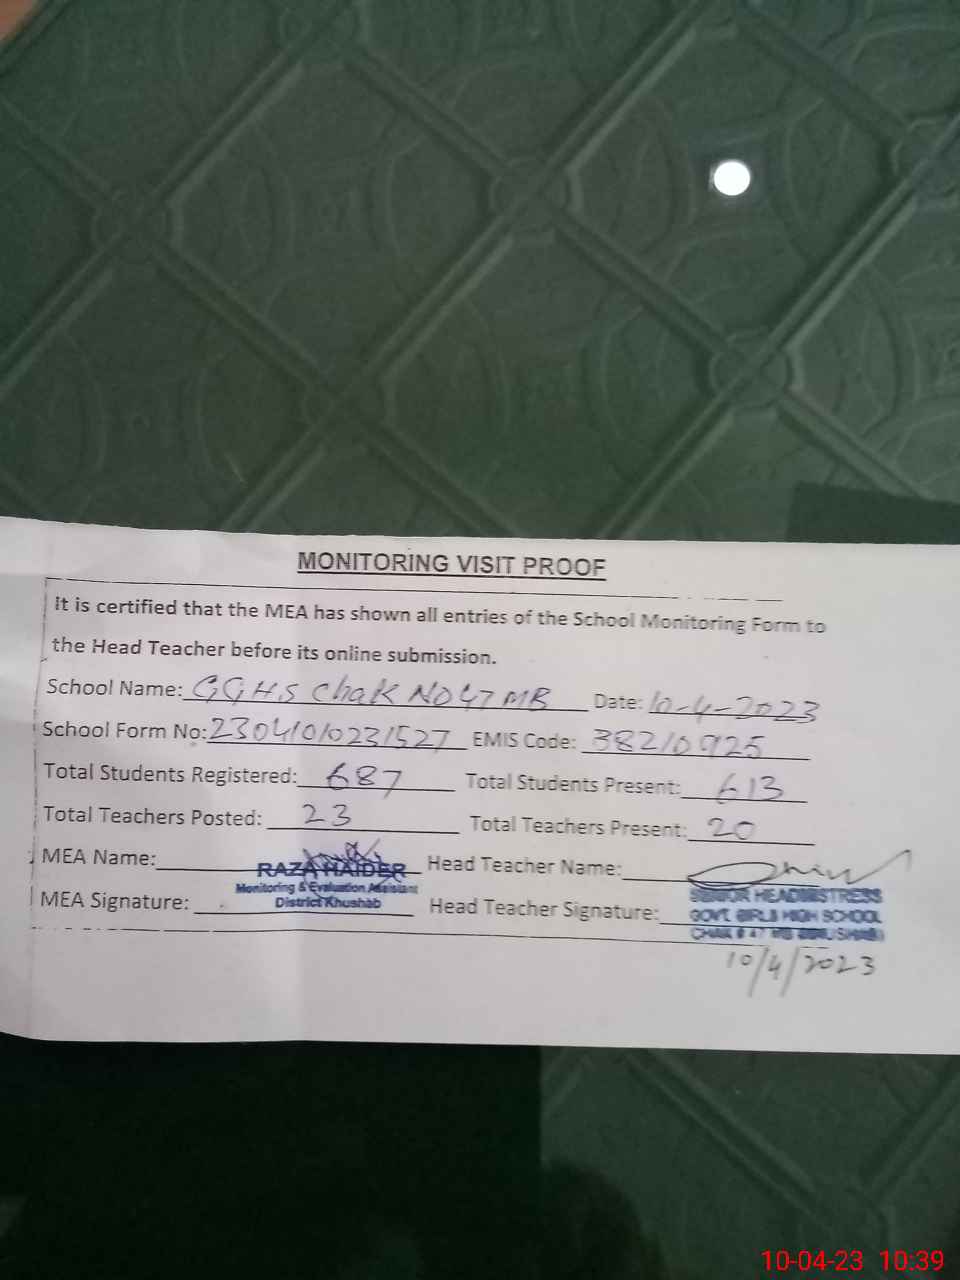 MONITORING VISIT PROOF
It is certified that the MEA has shown all entries of the School Monitoring Form to
the Head Teacher before its online submission.
School Name: GGHS Chak NO 47 MB Date: 10-4-2023
School Form No: 23041010231527 EMIS Code: 38210925
Total Students Registered: 687 Total Students Present: 613
Total Teachers Posted: 23 Total Teachers Present: 20
MEA Name: RAZA HAIDER Head Teacher Name:
Monitoring & Evaluation Assistant
District Khushab
MEA Signature: Head Teacher Signature:
SENIOR HEADMISTRESS
GOVT. GIRLS HIGH SCHOOL
CHAK # 47 MB (KHUSHAB)
10/4/2023
10-04-23 10:39